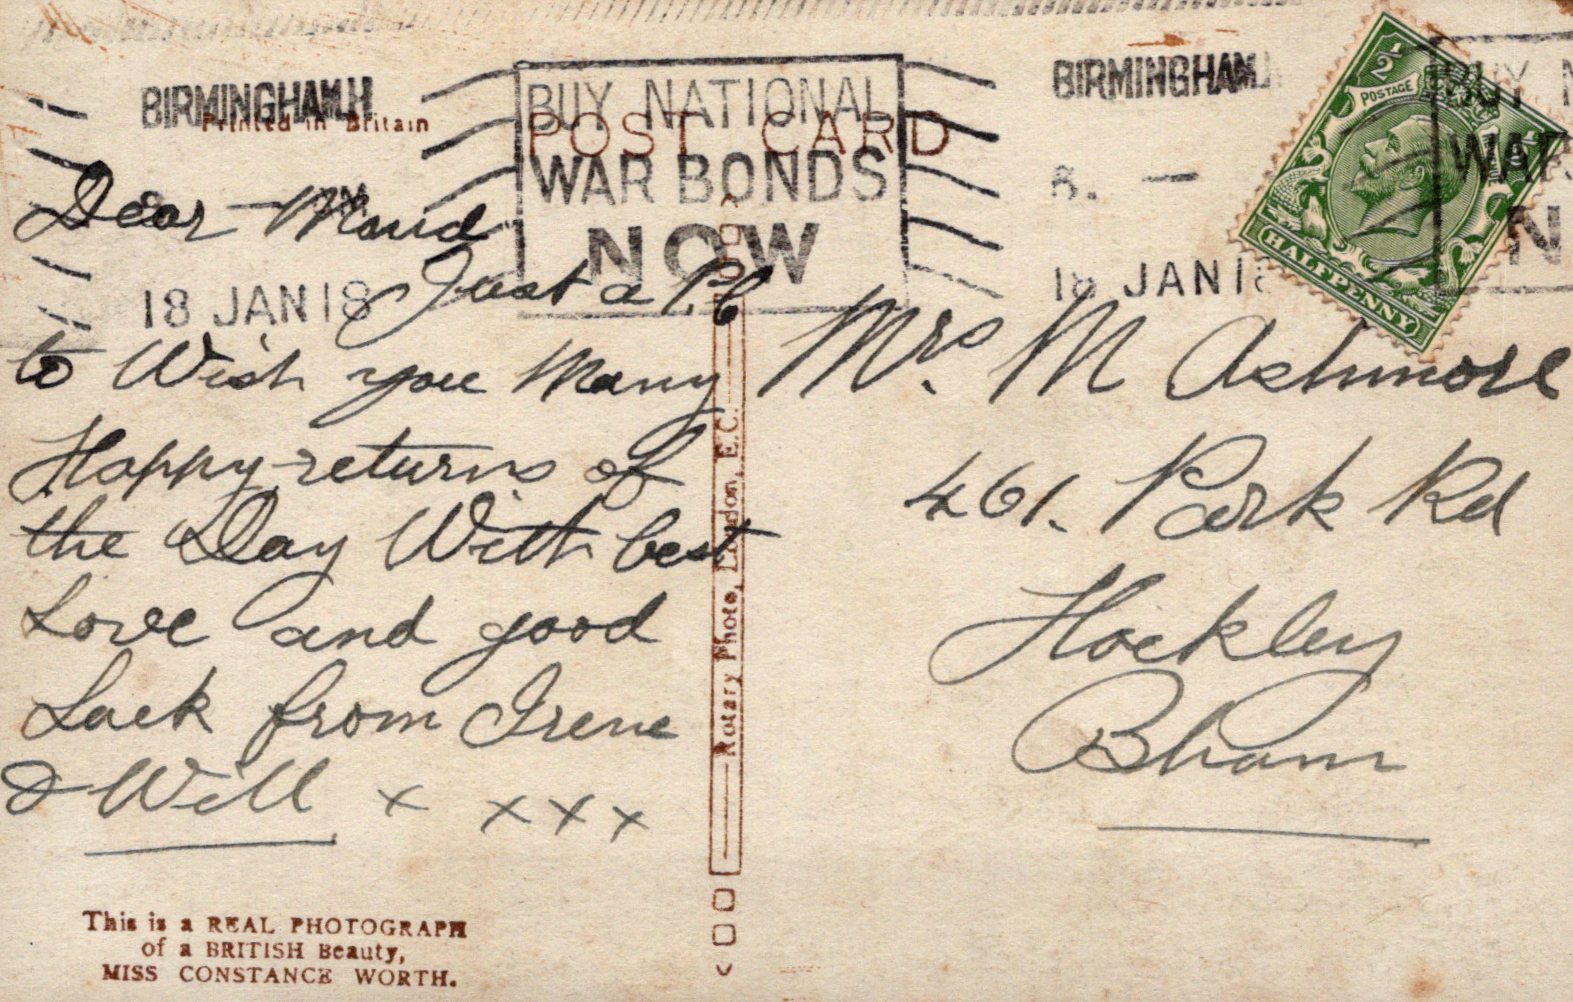 BIRMINGHAM.H
Printed in Britain
8. — PM
18 JAN 18
BUY NATIONAL
WAR BONDS
NOW
POST CARD
BIRMINGHAM
8. —
18 JAN 18
BUY N
WAR
N
½ POSTAGE
HALFPENNY
Dear Maud
Just a P.C
to Wish you Many
Happy returns of
the Day With best
Love and good
Luck from Irene
& Will x x x x
Mrs. M Ashmore
461. Park Rd
Hockley
Bham
Rotary Photo, London, E.C.
This is a REAL PHOTOGRAPH
of a BRITISH Beauty,
MISS CONSTANCE WORTH.